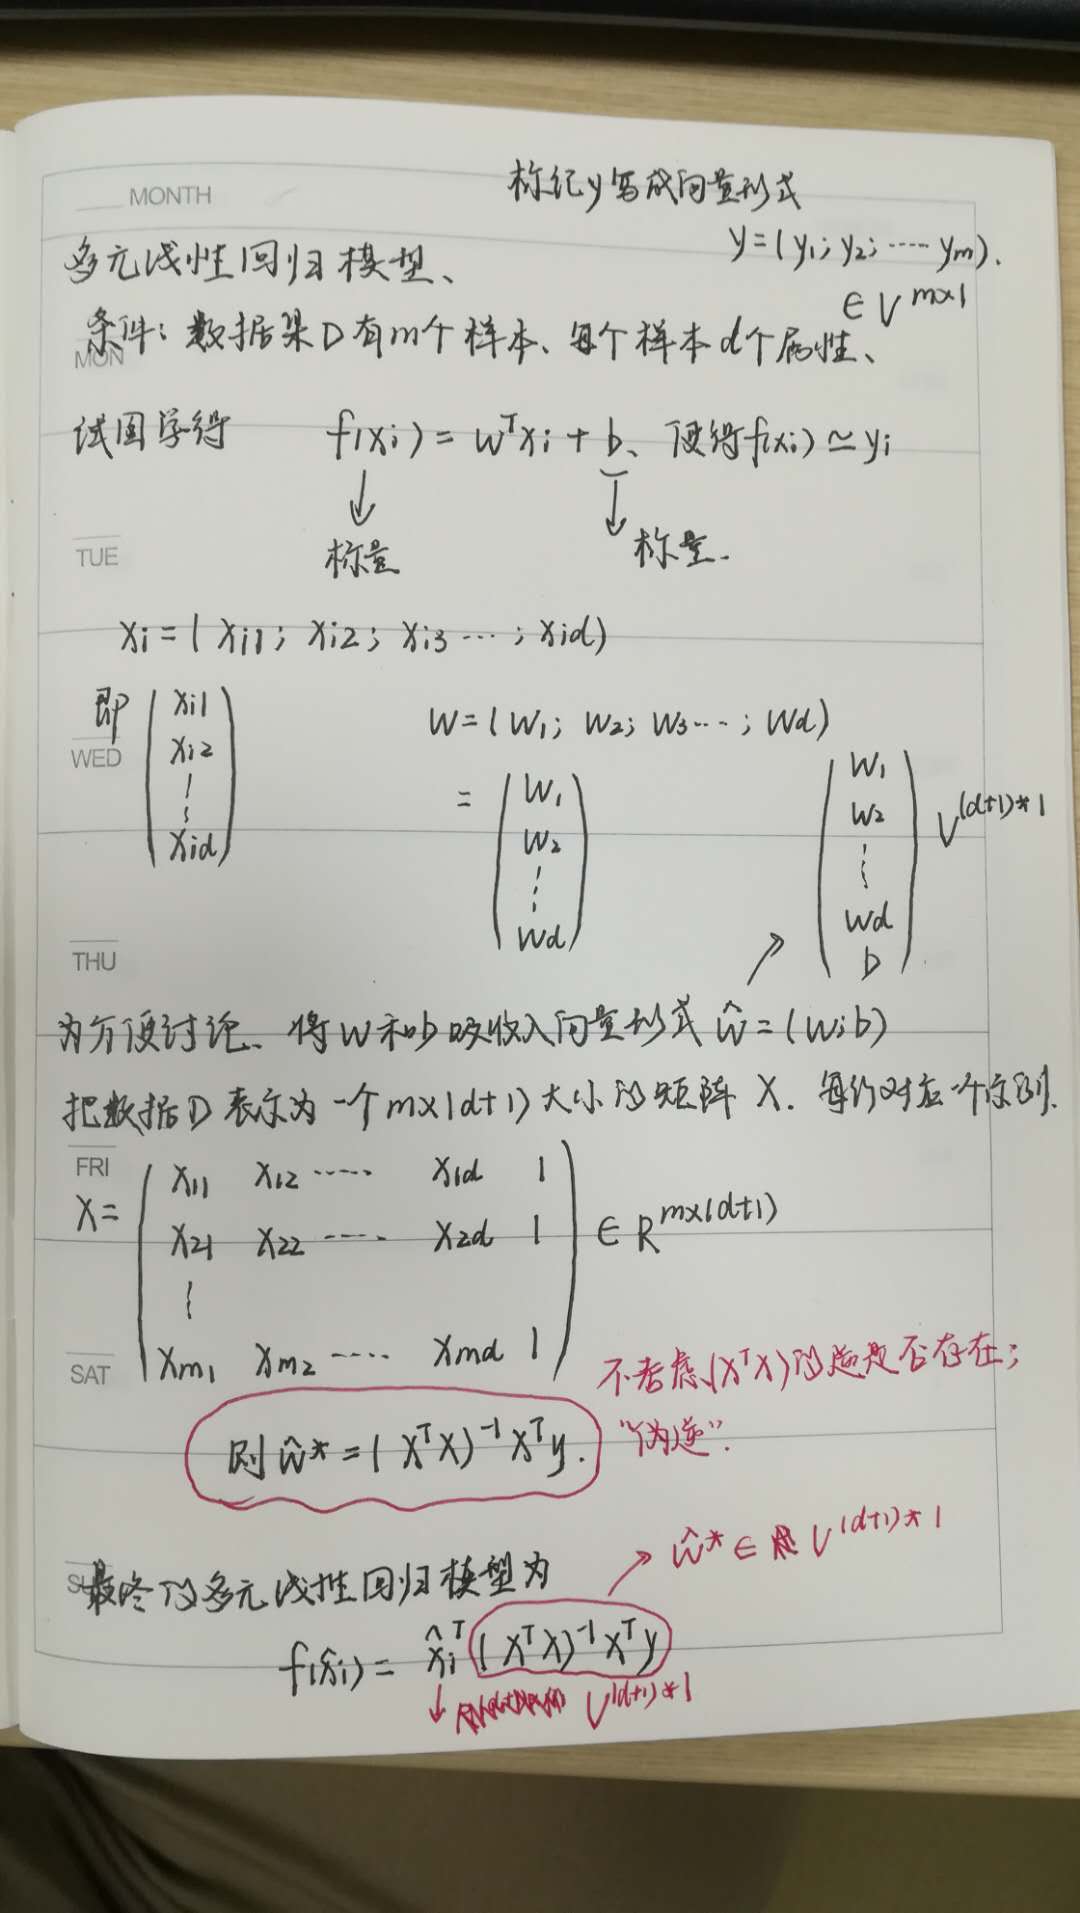 MONTH
标记y写成向量形式
y=(y₁; y₂; ····· yₘ).
∈ V^{m×1}
多元线性回归模型、
条件: 数据集D有m个样本、每个样本d个属性、
MON
试图学得 f(xᵢ) = wᵀxᵢ + b、使得f(xᵢ) ≃ yᵢ
↓ ↓
标量 标量.
TUE
xᵢ = ( xᵢ₁; xᵢ₂; xᵢ₃ ··· ; xid)
即 ( xᵢ₁
xᵢ₂
⋮
xid )
WED
w = ( w₁; w₂; w₃ ··· ; wd)
= ( w₁
w₂
⋮
wd )
( w₁
w₂
⋮
wd
b ) V^{(d+1)*1}
THU
为方便讨论、将w和b吸收入向量形式 ŵ = (w; b)
把数据D表示为一个 m×(d+1) 大小的矩阵 X. 每行对应一个示例.
FRI
X = ( x₁₁ x₁₂ ····· x₁d 1
x₂₁ x₂₂ ····· x₂d 1
⋮
xₘ₁ xₘ₂ ····· xmd 1 ) ∈ R^{m×(d+1)}
SAT
不考虑(XᵀX)的逆是否存在;
"伪逆".
则 ŵ* = ( XᵀX)⁻¹Xᵀy.
→ ŵ* ∈ V^{(d+1)*1}
最终的多元线性回归模型为
f(x̂ᵢ) = x̂ᵢᵀ (XᵀX)⁻¹Xᵀy
↓ V^{(d+1)*1}